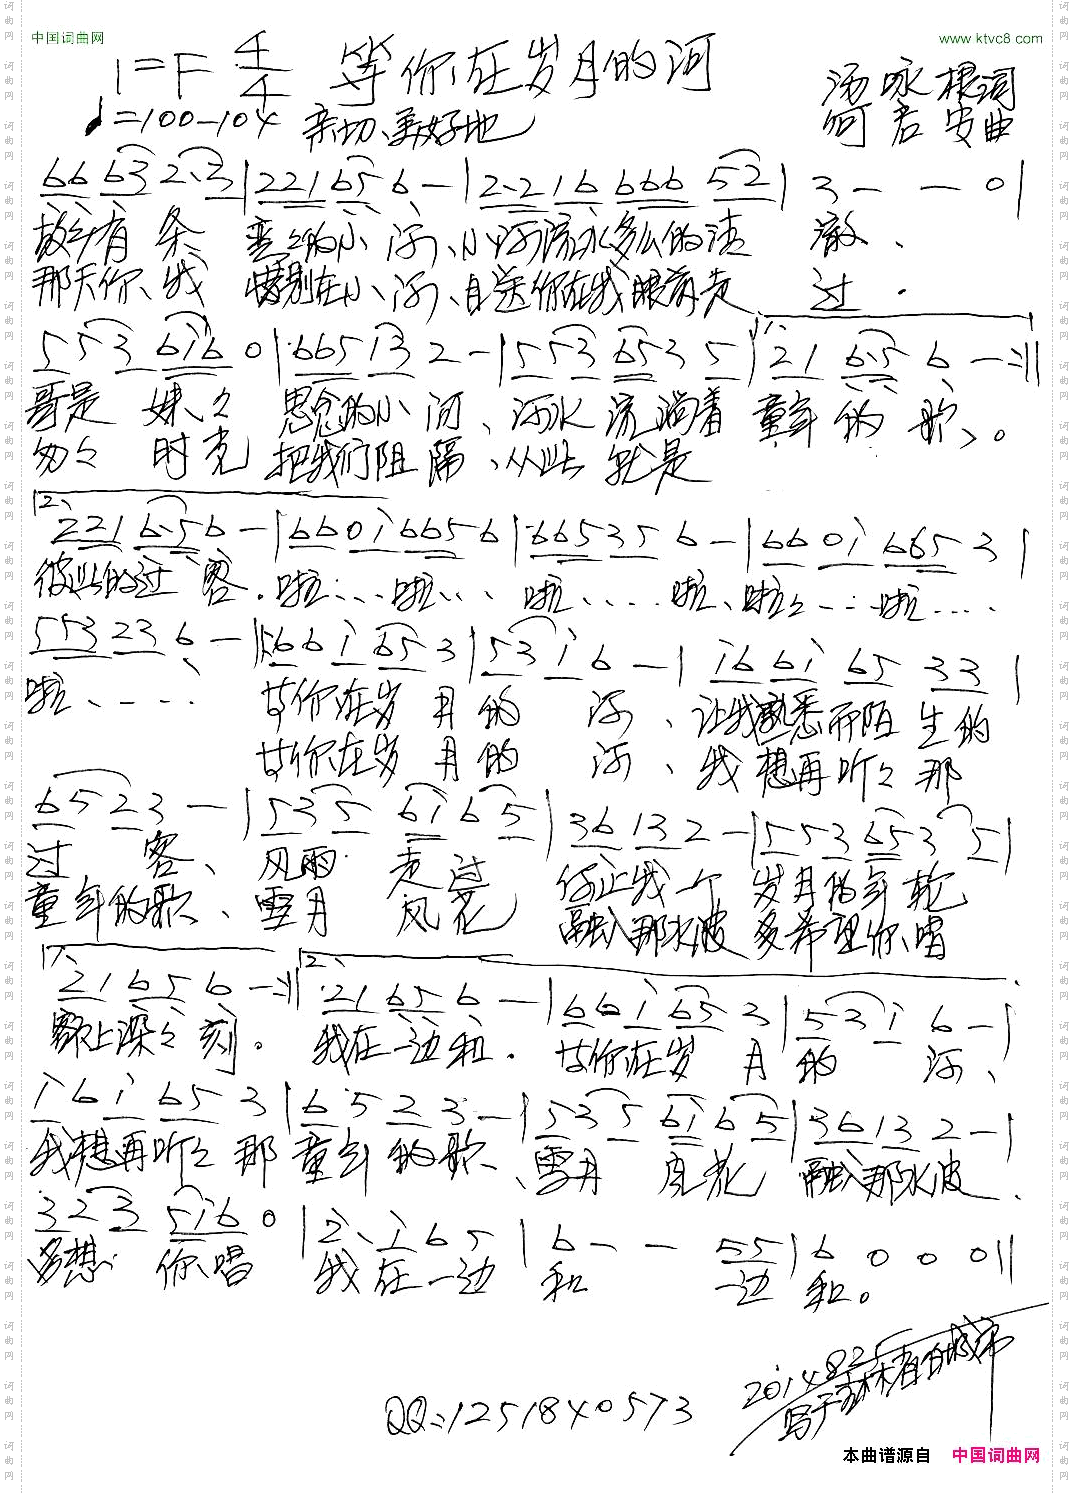 中国词曲网
www.ktvc8.com
1=F 4/4 等你在岁月的河
汤咏根词
♩=100-104 亲切、美好地
何君安曲
66 63 2·3 | 221 65 6 - | 2·216 666 52 | 3 - - 0 |
故乡有条 弯々的小河、小河流水多么的清澈、
那天你、我 惜别在小河、目送你在我眼前走过.
5 53 6i6 0 | 665 13 2 - | 553 653 5 | 1、 21 6·5 6 - :||
哥是妹々 思念的小河、河水流淌着 童年的歌、。
匆々时光 把我们阻隔、从此就是
2、 221 6·5 6 - | 660i 665 6 | 66535 6 - | 660i 665 3 |
彼此的过客. 啦…啦… 啦…. 啦、啦々…啦….
553 23 6 - || 66i 65 3 | 53 i 6 - | i6 6i 65 33 |
啦、…. 等你在岁月的河、让我熟悉而陌生的
等你在岁月的河、我想再听々那
65 23 - | 53 5 6i 6 5 | 36 13 2 - | 553 653 5 |
过客、风雨走过 你让我一个 岁月的年轮
童年的歌、雪月风花 融入那水波 多希望你、唱
1、 21 65 6 - :|| 2、 21 65 6 - | 66i 65 3 | 53 i 6 - |
额上深々刻。 我在一边和. 等你在岁月的河、
i6i 65 3 | 6 5 2 3 - | 53 5 6i 6 5 | 36 13 2 - |
我想再听々那童年的歌、雪月风花 融入那水波.
3 23 5i6 0 | 2、i 6 5 | 6 - - 55 | 6 0 0 0 ||
多想 你、唱 我在一边和 一边和。
2014 8 25
QQ:1251840573
本曲谱源自 中国词曲网